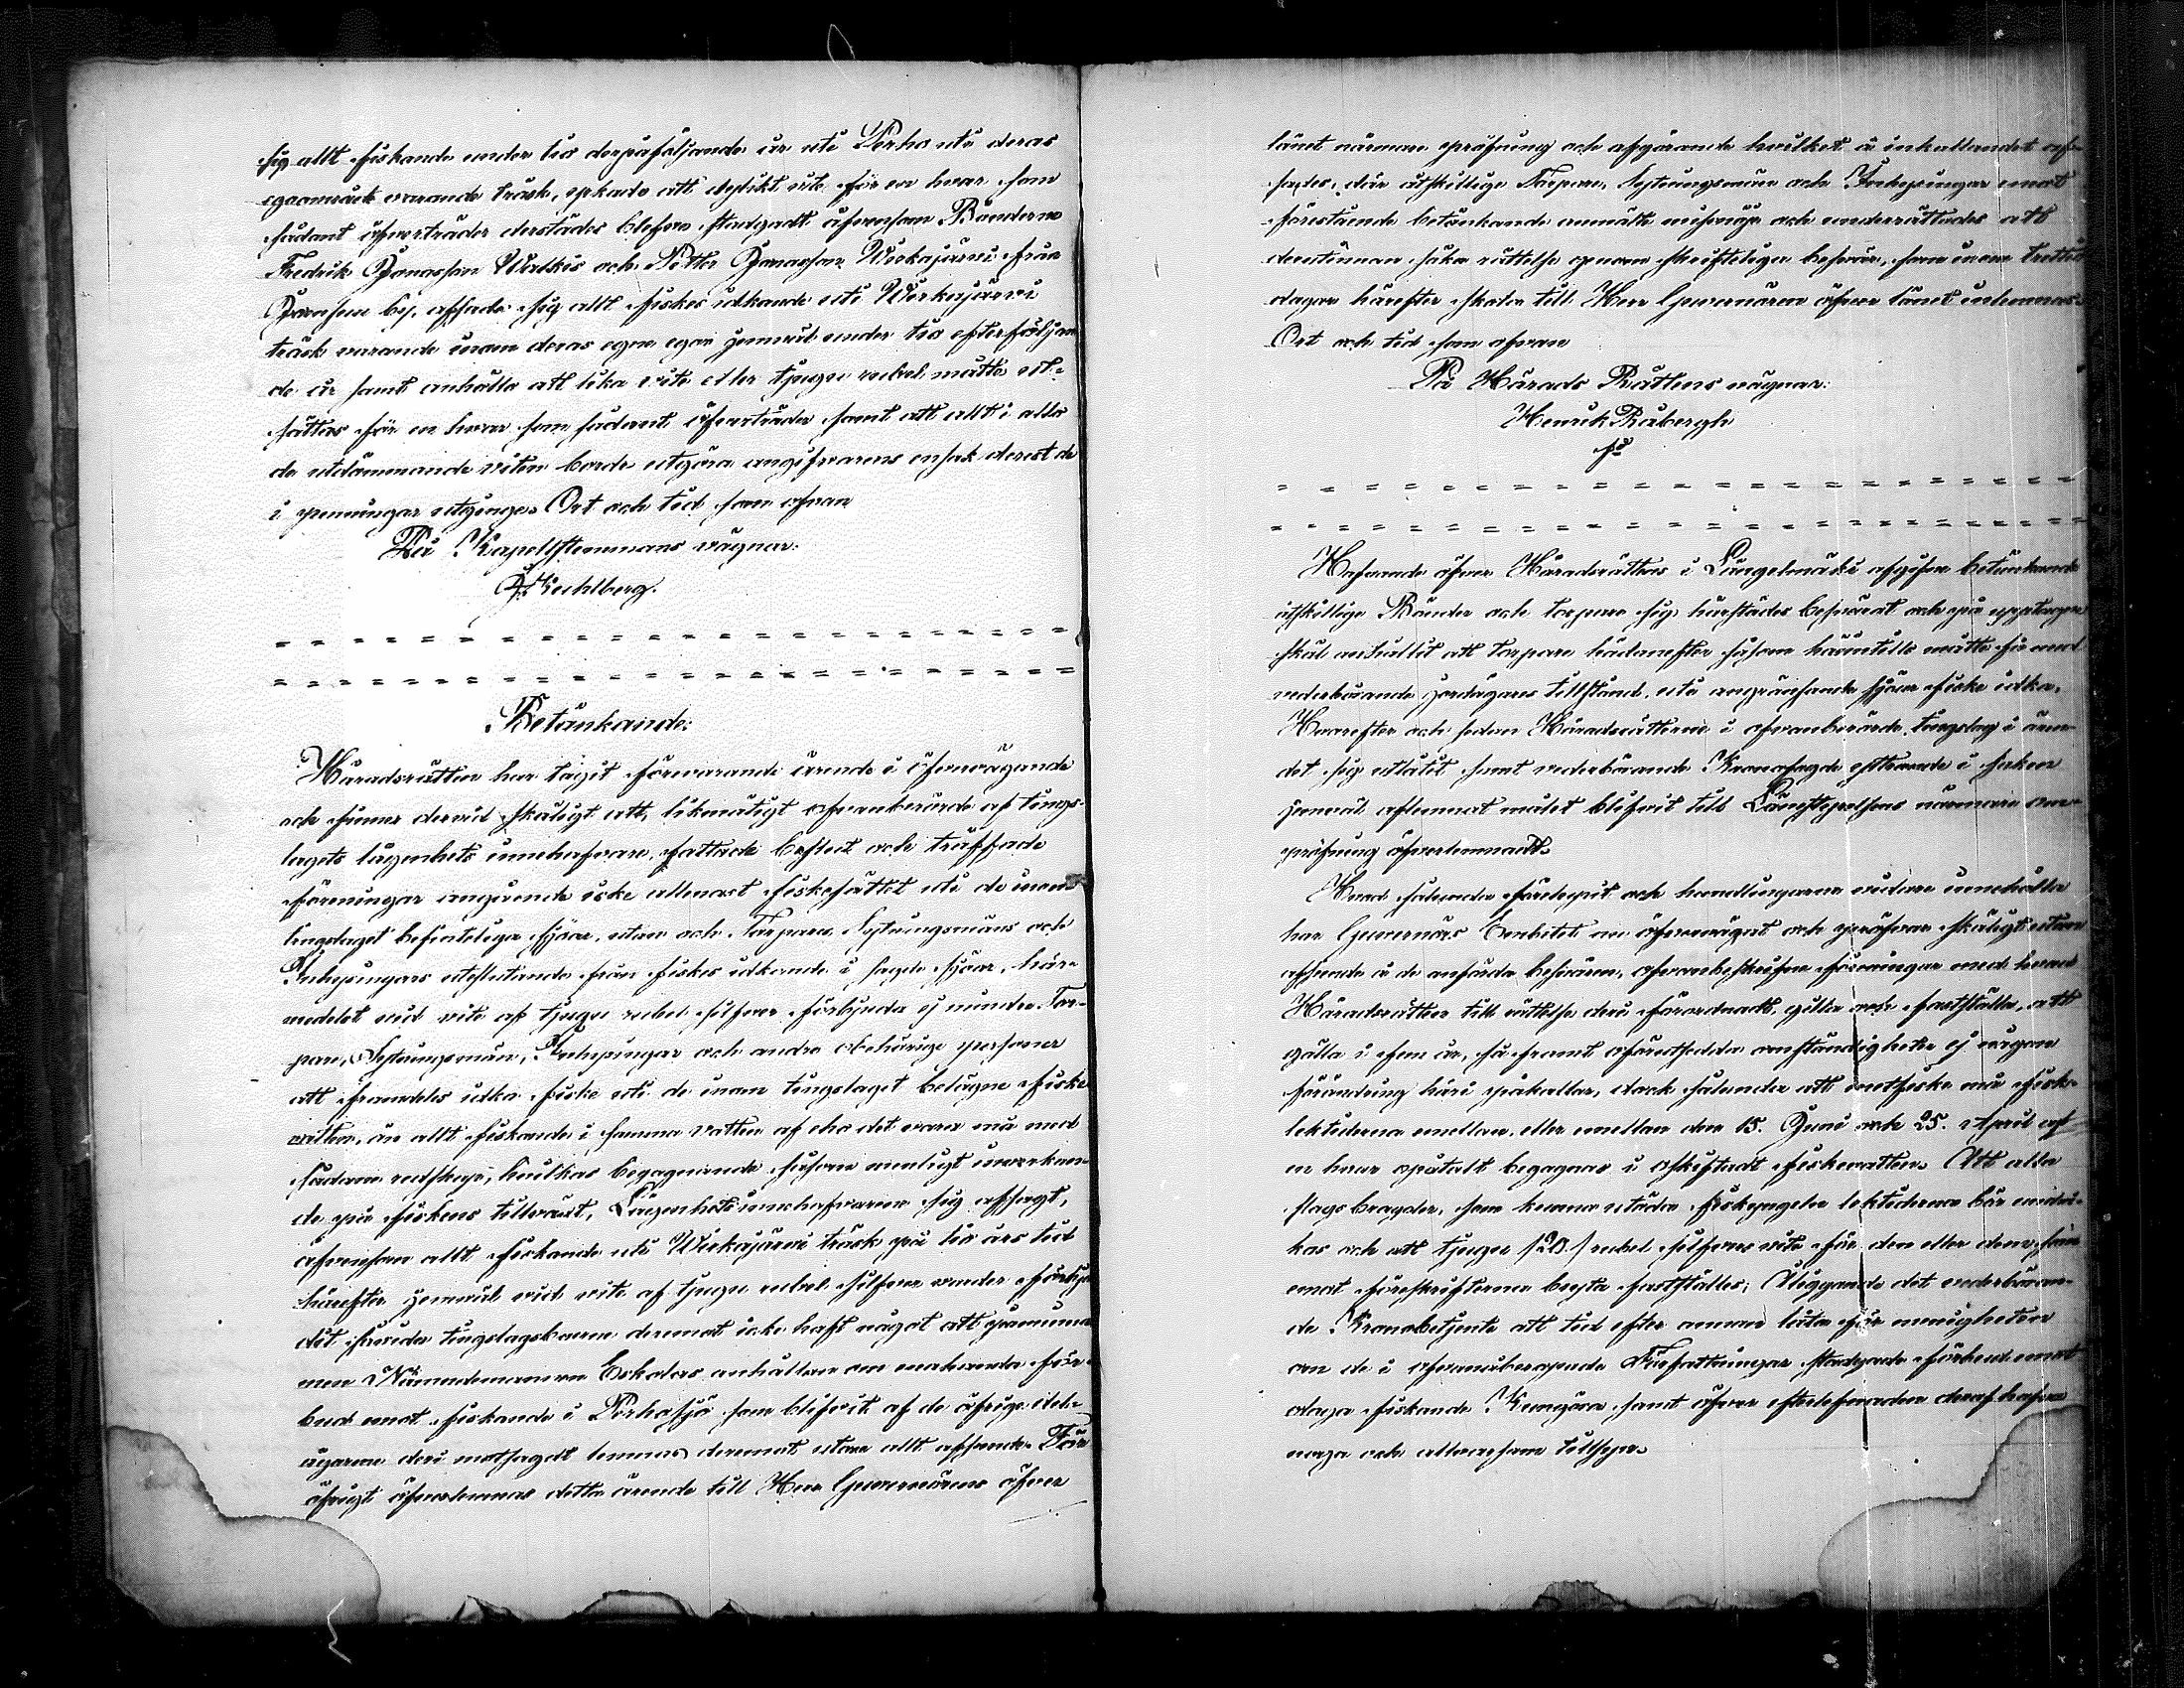 sig allt fiskande under tio derpåföljande år uti Perho uti deras
egoområde varande träsk, yrkade att dylikt vite för en hvar som
sådant öfverträder derstädes blefve stadgadt äfvensom Bönderne
Fredrik Jonasson Walkis och Petter Jonasson Wirkajärvi från
by, afsade sig allt fiskes idkande uti Wirkajärvi
träsk varande inom deras egne egor jemväl under tio efterföljan-
de år samt anhålla att lika vite eller tjugu rubel måtte ut-
sättas för en hvar som sådant öfverträder samt att allt i allo
de utdömmande viten borde utgöra angifvarens ensak derest de
i penningar utginge. Ort och tid som ofvan
På Kapellstemmans vägnar:
= = = = = = = = = = = = = = = = = = = = = =
= = = = = = = = = = = = = = = = = = = = = =
Betänkande:
Häradsrätten har tagit förevarande ärende i öfvervägande
och finner dervid skäligt att, likmätigt ofvanberörde af tings-
lagets lägenhets innehafvare, fattade beslut och träffade
föreningar angående icke allenast fiskesättet uti de inom
tingslaget befinteliga sjöar, utan och Torpare, Sytningsmäns och
Inhysingars uteslutande från fiskes idkande i sagde sjöar, här-
medelst vid vite af tjugu rubel silfver förbjuda ej mindre Tor-
pare, Sytningsmän, Inhysingar och andra obehörige personer
att framdeles idka fiske uti de inom tingslaget belägne fiske
vatten, än allt fiskande i samma vatten af eho det vara må med
sådane redskap, hvilkas begagnande såsom menligt inverkan-
de på fiskens tillväxt, Lägenhets innehafvarene sig afsagt,
äfvensom allt fiskande uti Wirkajärvi träsk på tio års tid
härefter jemväl vid vite af tjugu rubel silfver varder förbju-
det, tingslagsboerne deremot icke haft något att påminna
men Nämndemannen Eskolas anhållan om enahanda för-
bud emot fiskande i Perhosjö som blifvit af de öfrige del-
ägarene deri motsagdt lemnas deremot utan allt afseende. För
öfrigt öfverlemnas detta ärende till Herr Guvernörens öfver
länet närmare pröfning och afgörande hvilket å inkallandet af-
sades, där åtskillige Torpare, Sytningsmän och Inhysingar emot
förestående betänkande anmälte missnöje och underrättades att
derutinnan söka rättelse genom skrifteliga besvär, som inom trettio
dagar härefter skola till Herr Guvernören öfver länet inlemnas.
Ort och tid som ofvan
På Härads Rättens vägnar:
Henrik Råbergh
= = = = = = = = = = = = = = = = = = = = = =
= = = = = = = = = = = = = = = = = = = = = =
Hafvande öfver Häradsrättens i Längelmäki afgifne betänkande
åtskillige Bönder och torpare sig härstädes besvärat och på upptagne
skäl anhållit att torpare hädanefter såsom härintills måtte få med
vederbörande jordägares tillstånd, uti angränsande sjöar fiske idka.
Hvarefter och sedan Häradsrätterne i ofvanberörde tingslag i äm-
net sig utlåtit samt vederbörande Kronofogde utlåtande i saken
jemväl aflemnat målet blifvit till Länstyrelsens närmare om-
pröfning öfverlemnadt.
Hvad sålunda förelupit och handlingarna vidare innehålla
har Guvernörs Embetet nu öfvervägat och pröfvar skäligt utan
afseende å de anförda besvären, ofvanbeskrifne föreningar med hvad
Häradsrätten till rättelse deri förordnadt, gilla och fastställa, att
gälla i fem år, så framt oförutsedda omständigheter ej någon
förändring häri påkallar, dock sålunda att notfiske må fisk-
lektiderna emellan, eller emellan den 15. Juni och 25. April af
en hvar opåtalt begagnas i oskiftadt fiskevatten. Att alla
slags bragder, som kunna utöda fiskyngeln lektiderna bör undvi-
kas och att tjugu /20./ rubel silfvers vite för den eller dem som
emot föreskrifterna bryta fastställes; Åliggande det vederböran-
de Kronobetjente att tid efter annan låta för menigheten
om de i åberopade Författningar stadgade förbud emot
olaga fiskande Kungöra samt öfver efterlefnaden deraf hafva
noga och allvarsam tillsyn.